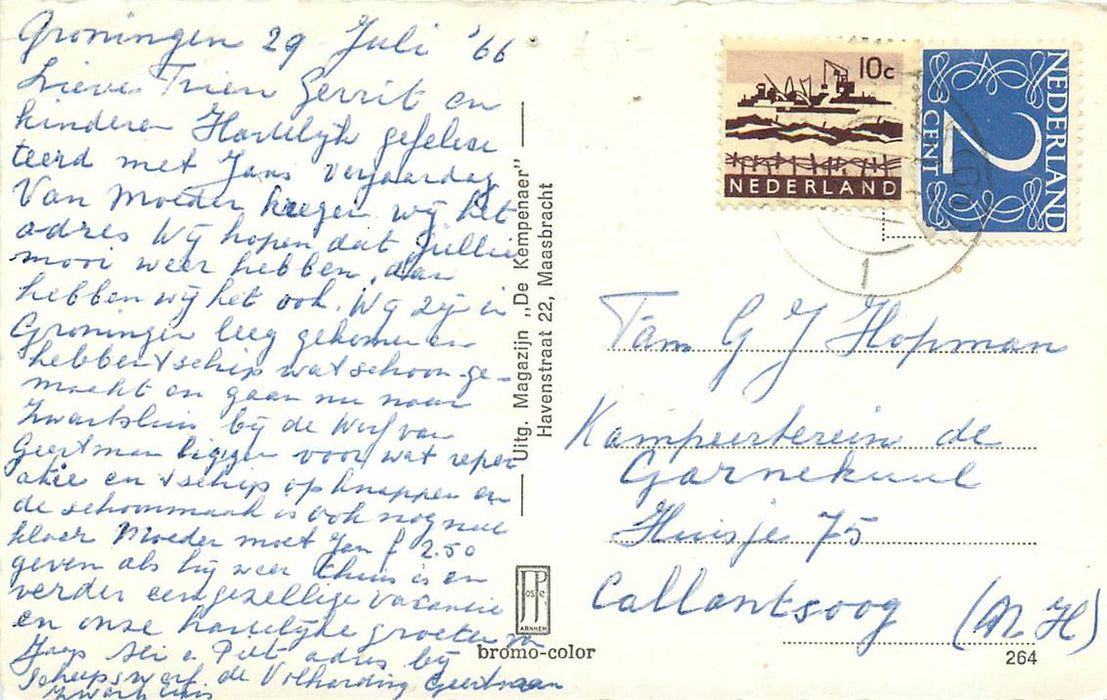 Groningen 29 Juli '66
Lieve Trien Gerrit en
kinderen Hartelijk gefelici
teerd met Jans verjaardag
Van Moeder kregen wij het
adres Wij hopen dat jullie
mooi weer hebben, dan
hebben wij het ook. Wij zijn in
Groningen leeg gekomen en
hebben 't schip wat schoon ge-
maakt en gaan nu naar
Zwartsluis bij de Werf van
Geertman liggen voor wat repar
atie en 't schip opknappen en
de schoonmaak is ook nog niet
klaar Moeder moet Jan f 2.50
geven als hij weer thuis is en
verder een gezellige vacantie
en onze hartelijke groeten
Jans Ali e Piet adres bij
Scheepswerf de Volharding Geertman
Zwartsluis
Uitg. Magazijn „De Kempenaer"
Havenstraat 22, Maasbracht
JosPe
ARNHEM
bromo-color
10c
NEDERLAND
NEDERLAND
2
CENT
1
Fam G J Hopman
Kampeerterein de
Garnekuul
Huisje 75
Callantsoog (N H)
264